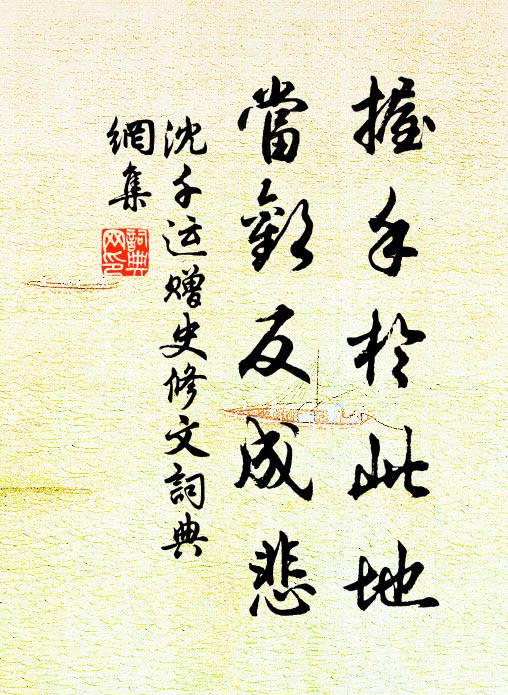 握手於此地
當歡反成悲
沈千运赠史修文詞典
網集
詞典
网印